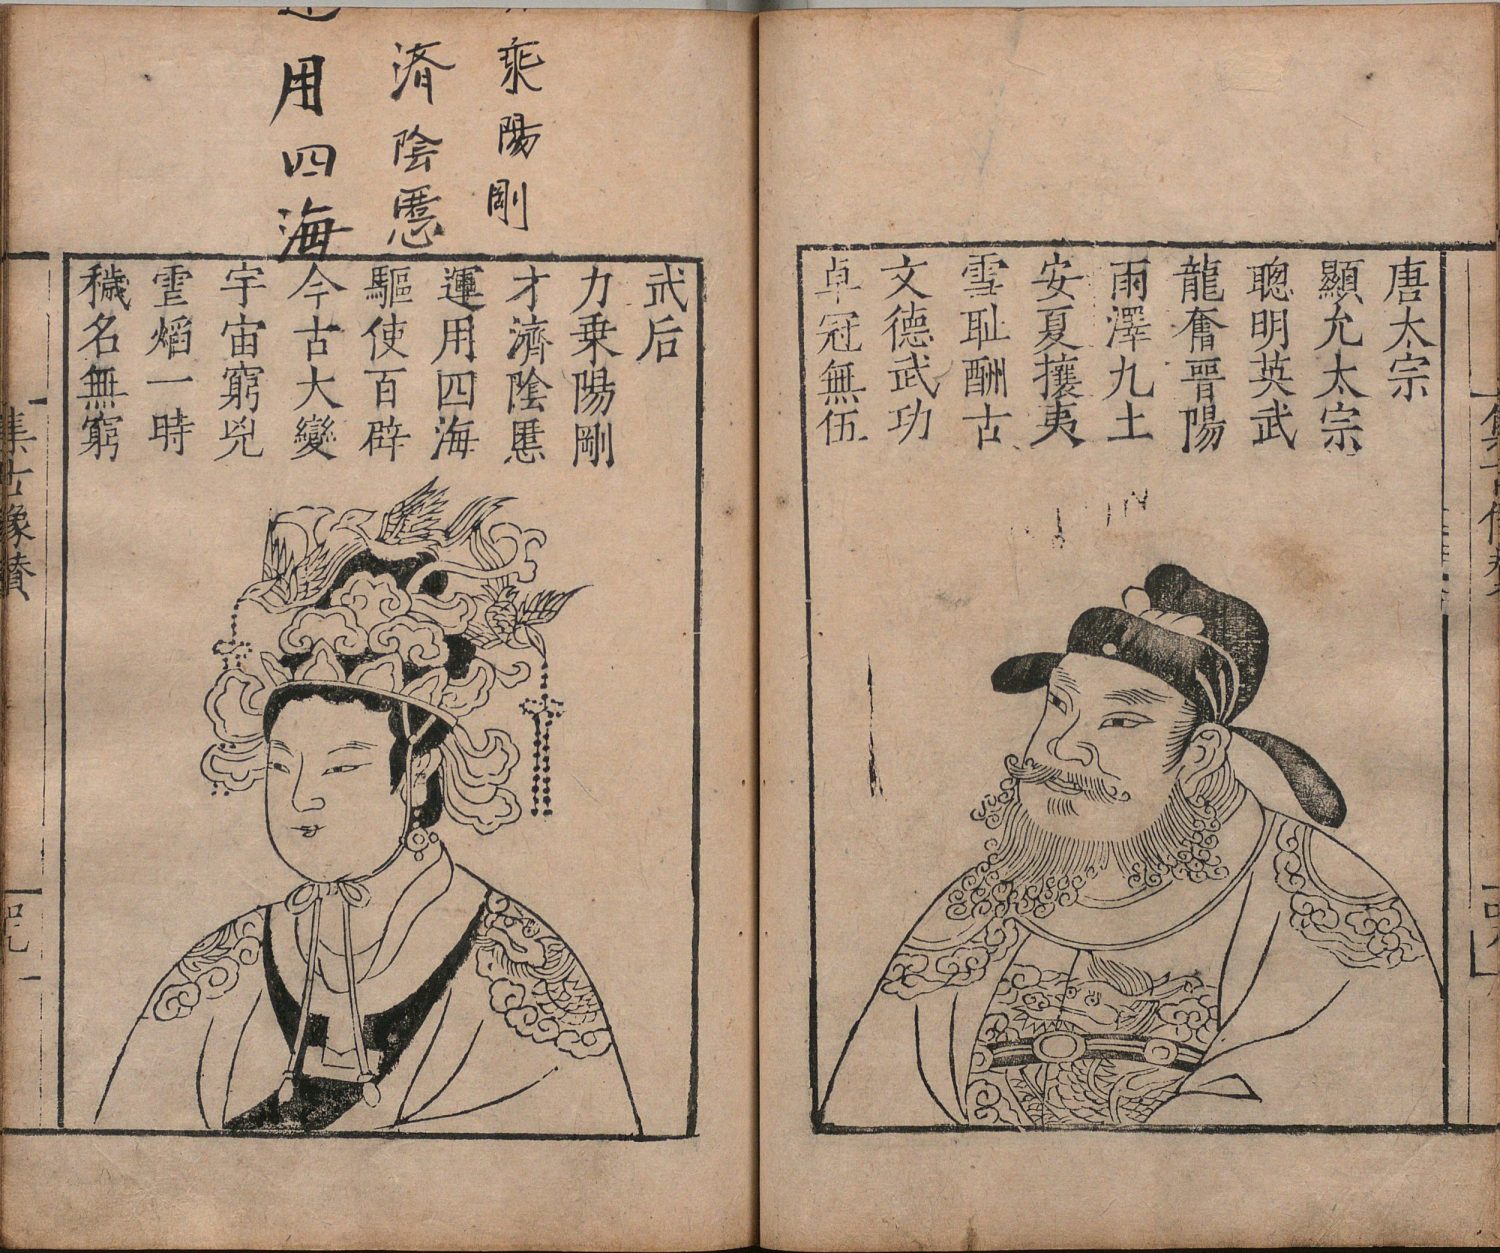 唐太宗
顯允太宗
聰明英武
龍奮晉陽
雨澤九土
安夏攘夷
雪恥酬古
文德武功
卓冠無伍
乘陽剛
濟陰慝
用四海
武后
力乗陽剛
才濟陰慝
運用四海
驅使百辟
今古大變
宇宙窮兇
䨓熖一時
穢名無窮
集古像贊